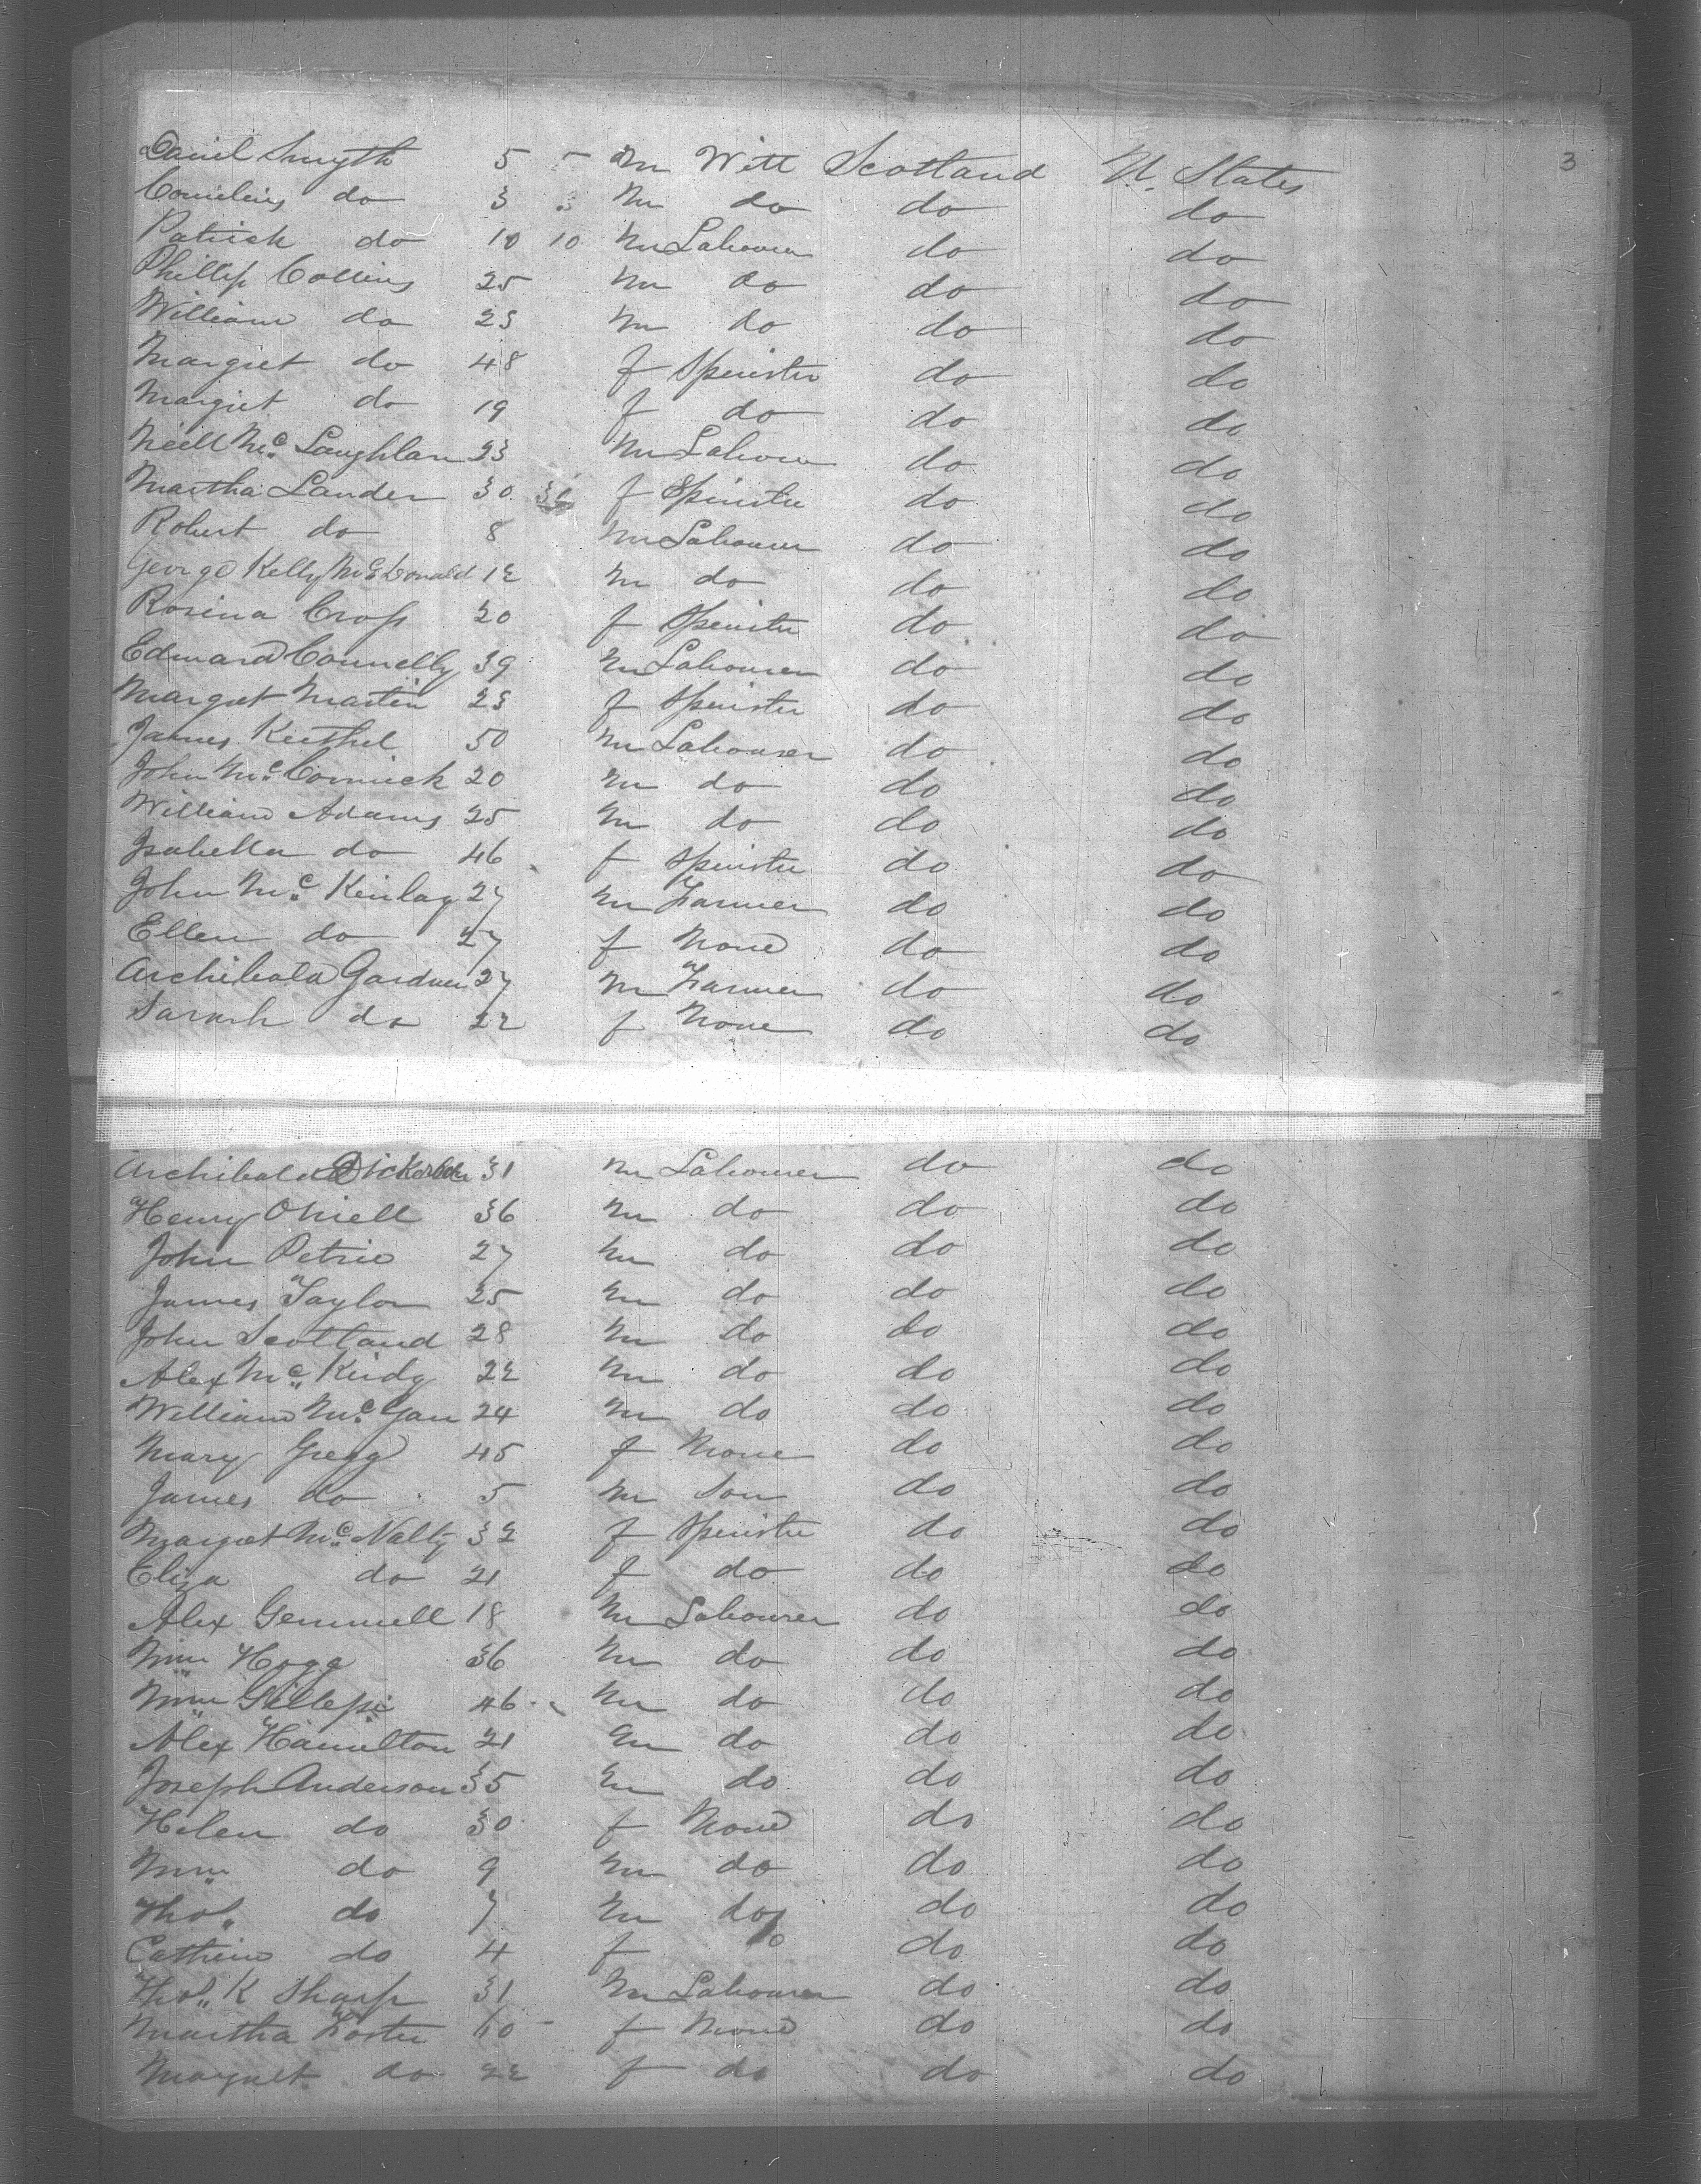 Daniel Smyth 5 5 m Witt Scotland U. States 3
Cornelius do 3 3 m do do do
Patrick do 10 10 m Labourer do do
Phillip Collins 25 m do do do
William do 23 m do do do
Margret do 48 f Spinster do do
Margret do 19 f do do do
Neill Mc Laughlan 23 m Labour do do
Martha Lander 30 f Spinster do do
Robert do 8 m Labourer do do
George Kelly McDonald 12 m do do do
Rosina Cross 20 f Spinster do do
Edward Connelly 39 m Labourer do do
Margret Martin 23 f Spinster do do
James 50 m Labourer do do
John McCormick 20 m do do do
William Adams 25 m do do do
Isabella do 46 f Spinster do do
John Mc Kinlay 27 m Farmer do do
Ellen do 27 f None do do
Archibald Gardner 27 m Farmer do do
Sarah do 22 f None do do
Archibald 31 m Labourer do do
Henry ONiell 36 m do do do
John Petrie 27 m do do do
James Taylor 25 m do do do
John Scotland 28 m do do do
Alex Mc 22 m do do do
William Mc Gan 24 m do do do
Mary Gregg 45 f None do do
James do 5 m Son do do
Margret McNalty 32 f Spinster do do
Eliza do 21 f do do do
Alex Gemmell 18 m Labourer do do
Wm Hogg 36 m do do do
Wm Gillespi 46 m do do do
Alex Hamilton 21 m do do do
Joseph Anderson 35 m do do do
Helen do 30 f None do do
Wm do 9 m do do do
Thos do 7 m do do do
Cathrine do 4 f do do do
Thos K Sharp 31 m Labourer do do
Martha Foster 60 f None do do
Margret do 22 f do do do